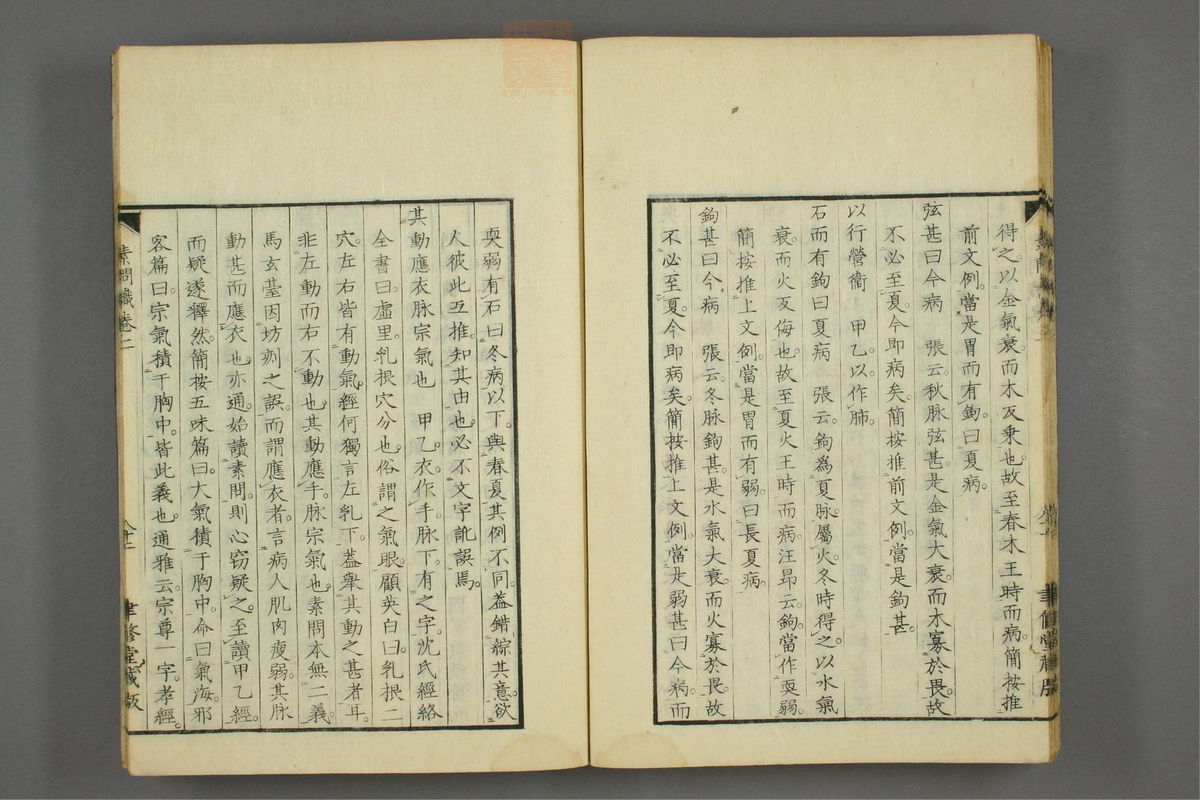 得之以金氣衰而木反乗也故至春木王時而病簡按推
前文例當是胃而有鉤曰夏病
弦甚曰今病　張云秋脉弦甚是金氣大衰而木寡於畏故
不必至夏今即病矣簡按推前文例當是鉤甚
以行營衞　甲乙以作肺
石而有鉤曰夏病　張云鉤爲夏脉屬火冬時得之以水氣
衰而火反侮也故至夏火王時而病汪昻云鉤當作耎弱
簡按推上文例當是胃而有弱曰長夏病
鉤甚曰今病　張云冬脉鉤甚是水氣大衰而火寡於畏故
不必至夏今即病矣簡按推上文例當是弱甚曰今病而
耎弱有石曰冬病以下與春夏其例不同葢錯綜其意欲
人彼此互推知其由也必不文字訛誤焉
其動應衣脉宗氣也　甲乙衣作手脉下有之字沈氏經絡
全書曰虛里乳根穴分也俗謂之氣眼顧英白曰乳根二
穴左右皆有動氣經何獨言左乳下葢舉其動之甚者耳
非左動而右不動也其動應手脉宗氣也素問本無二義
馬玄臺因坊刻之誤而謂應衣者言病人肌肉瘦弱其脉
動甚而應衣也亦通始讀素問則心窃疑之至讀甲乙經
而疑遂釋然簡按五味篇曰大氣積于胸中命曰氣海邪
客篇曰宗氣積于胸中皆此義也通雅云宗尊一字孝經
素問識卷二
八十二
聿修堂藏版